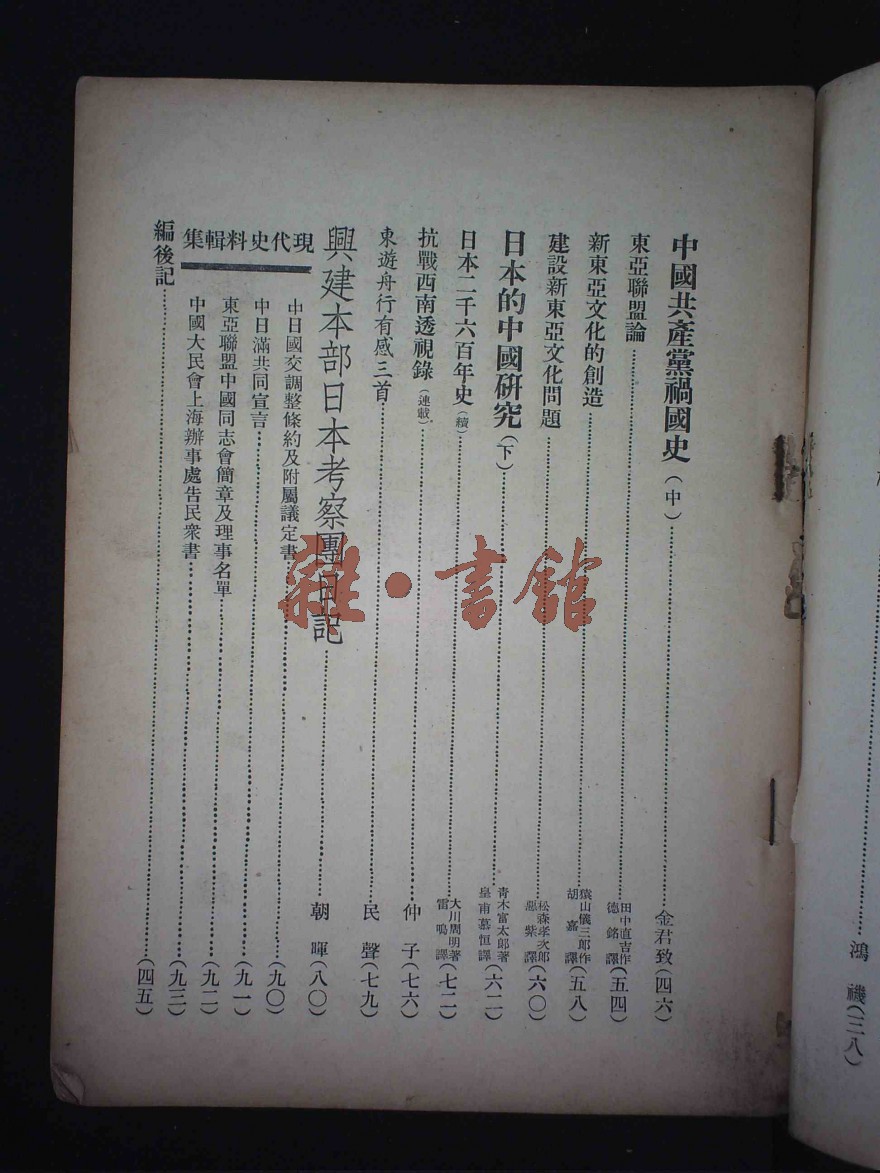 鴻磯(三八)
中國共產黨禍國史(中)……金君致(四六)
東亞聯盟論……田中直吉作 德銘譯(五四)
新東亞文化的創造……山儀三郎作 胡嘉譯(五八)
建設新東亞文化問題……松森孝次郎 紫譯(六〇)
日本的中國研究(下)……青木富太郎著 皇甫慕恒譯(六二)
日本二千六百年史(續)……大川周明著 雷鳴譯(七二)
抗戰西南透視錄(連載)……仲子(七六)
東遊舟行有感三首……民聲(七九)
興建本部日本考察團日記……朝暉(八〇)
現代史料輯集
中日國交調整條約及附屬議定書……(九〇)
中日滿共同宣言……(九一)
東亞聯盟中國同志會簡章及理事名單……(九二)
中國大民會上海辦事處告民衆書……(九三)
編後記……(四五)
雜·書館